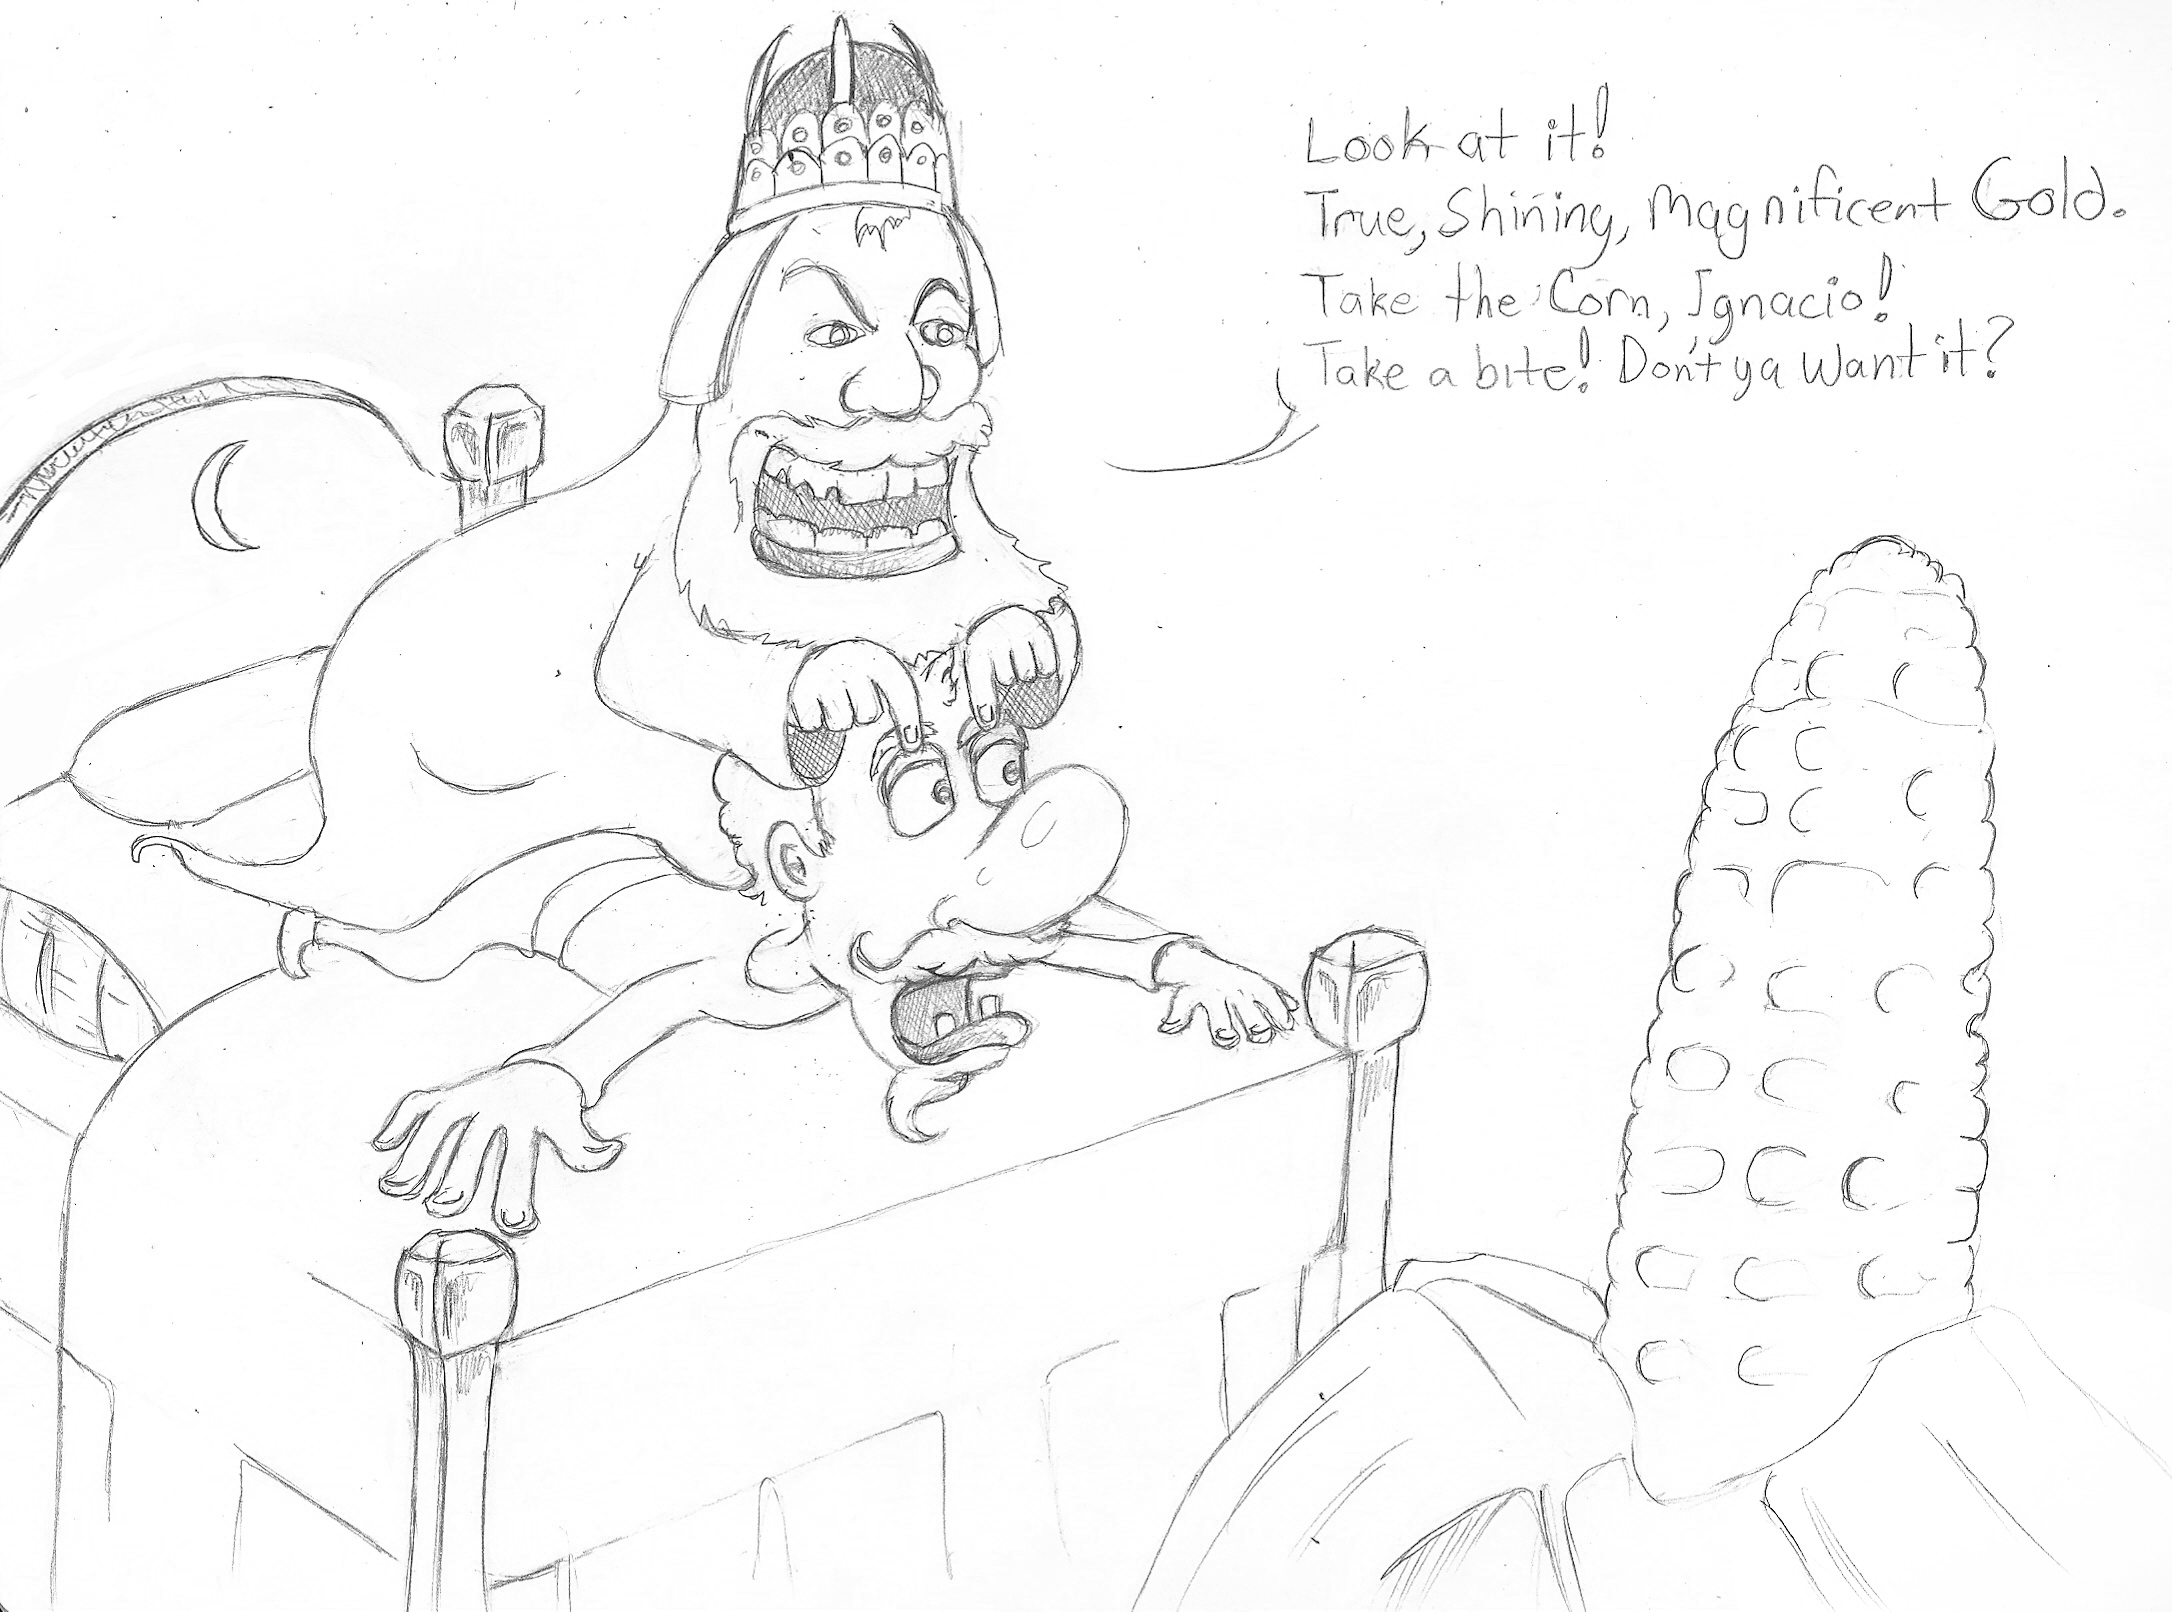 Look at it!
True, Shining, Magnificent Gold.
Take the Corn, Ignacio!
Take a bite! Don't ya Want it?